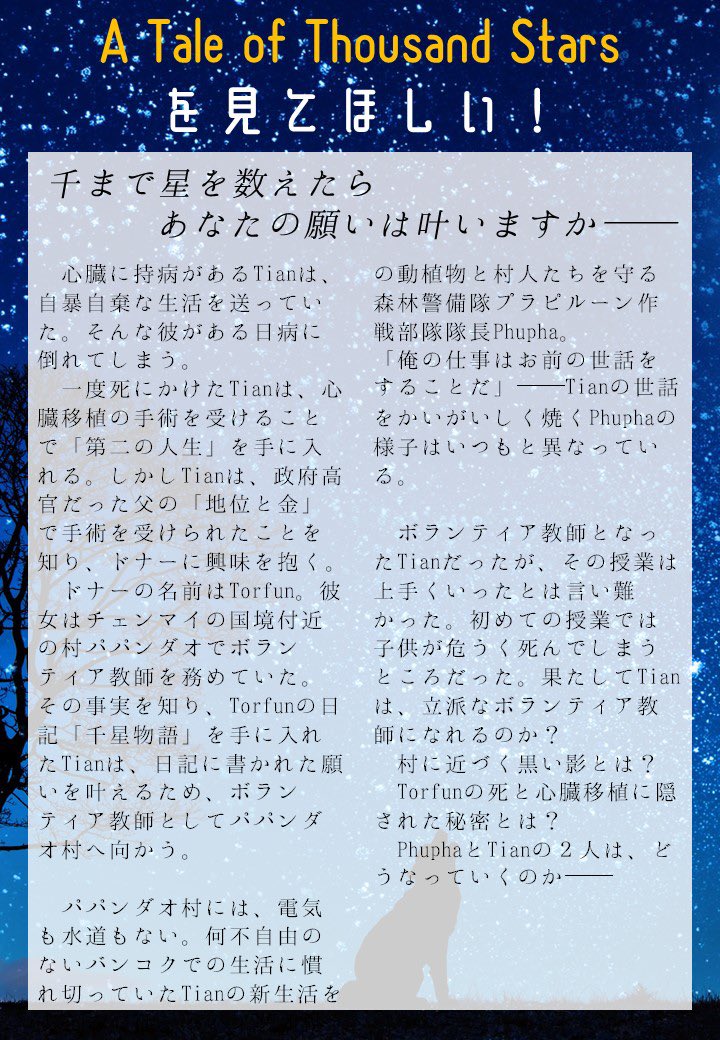 A Tale of Thousand Stars
を見てほしい！
千まで星を数えたら
あなたの願いは叶いますか――
心臓に持病があるTianは、
自暴自棄な生活を送ってい
た。そんな彼がある日病に
倒れてしまう。
一度死にかけたTianは、心
臓移植の手術を受けること
で「第二の人生」を手に入
れる。しかしTianは、政府高
官だった父の「地位と金」
で手術を受けられたことを
知り、ドナーに興味を抱く。
ドナーの名前はTorfun。彼
女はチェンマイの国境付近
の村パパンダオでボラン
ティア教師を務めていた。
その事実を知り、Torfunの日
記「千星物語」を手に入れ
たTianは、日記に書かれた願
いを叶えるため、ボラン
ティア教師としてパパンダ
オ村へ向かう。
パパンダオ村には、電気
も水道もない。何不自由の
ないバンコクでの生活に慣
れ切っていたTianの新生活を
の動植物と村人たちを守る
森林警備隊プラピルーン作
戦部隊隊長Phupha。
「俺の仕事はお前の世話を
することだ」――Tianの世話
をかいがいしく焼くPhuphaの
様子はいつもと異なってい
る。
ボランティア教師となっ
たTianだったが、その授業は
上手くいったとは言い難
かった。初めての授業では
子供が危うく死んでしまう
ところだった。果たしてTian
は、立派なボランティア教
師になれるのか？
村に近づく黒い影とは？
Torfunの死と心臓移植に隠
された秘密とは？
PhuphaとTianの２人は、ど
うなっていくのか――